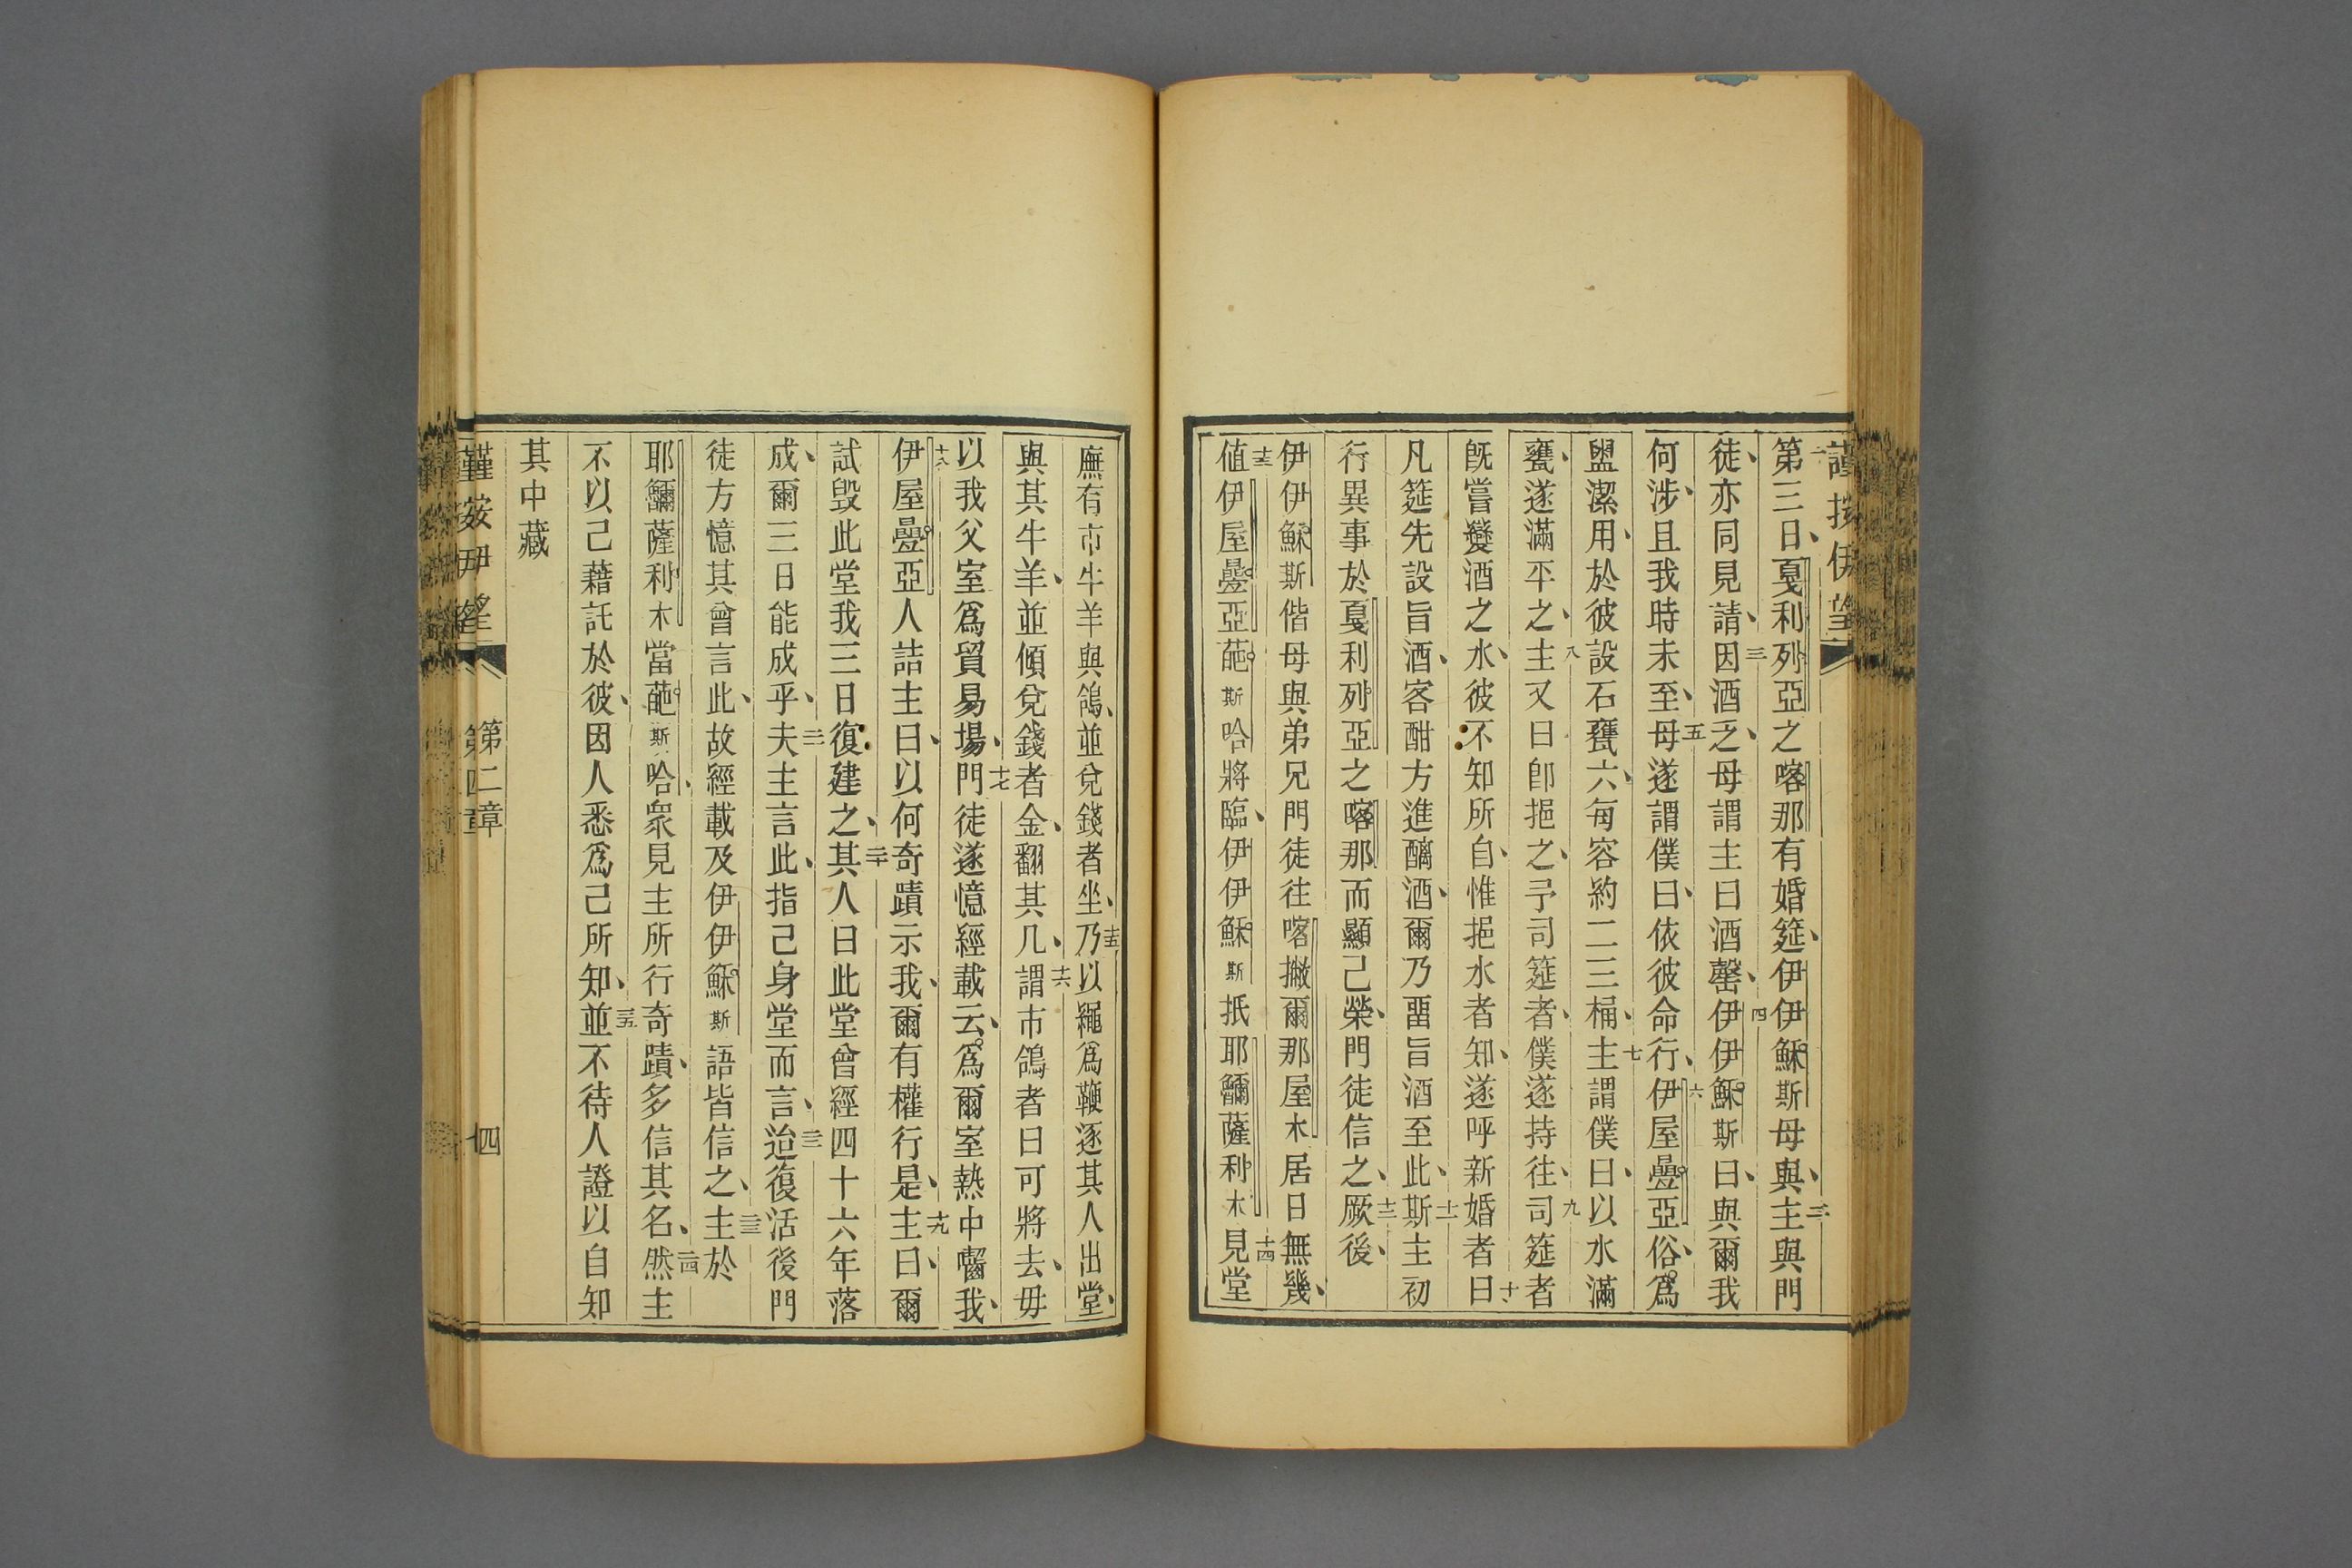 第三日戛利列亞之喀那有婚筵伊伊穌斯母與主與門
徒亦同見請因酒乏母謂主曰酒罄伊伊穌斯曰與爾我
何涉且我時未至母遂謂僕曰依彼命行伊屋疊亞俗爲
盥潔用於彼設石甕六每容約二三桶主謂僕曰以水滿
甕遂滿平之主又曰卽挹之予司筵者僕遂持往司筵者
旣嘗變酒之水彼不知所自惟挹水者知遂呼新婚者曰
凡筵先設旨酒客酣方進醨酒爾乃畱旨酒至此斯主初
行異事於戛利列亞之喀那而顯己榮門徒信之厥後
伊伊穌斯偕母與弟兄門徒往喀撇爾那屋木居日無幾
値伊屋疊亞葩斯哈將臨伊伊穌斯抵耶爾薩利木見堂
廡有市牛羊與鴿並兌錢者坐乃以繩爲鞭逐其人出堂
與其牛羊並傾兌錢者金翻其几謂市鴿者曰可將去毋
以我父室爲貿易場門徒遂憶經載云爲爾室熱中囓我
伊屋疊亞人詰主曰以何奇蹟示我爾有權行是主曰爾
試毀此堂我三日復建之其人曰此堂曾經四十六年落
成爾三日能成乎夫主言此指己身堂而言迨復活後門
徒方憶其曾言此故經載及伊伊穌斯語皆信之主於
耶爾薩利木當葩斯哈衆見主所行奇蹟多信其名然主
不以己藉託於彼因人悉爲己所知並不待人證以自知
其中藏
第二章
四